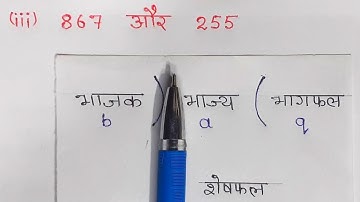 (iii) 867 और 255
भाजक ) भाज्य ( भागफल
b a q
शेषफल